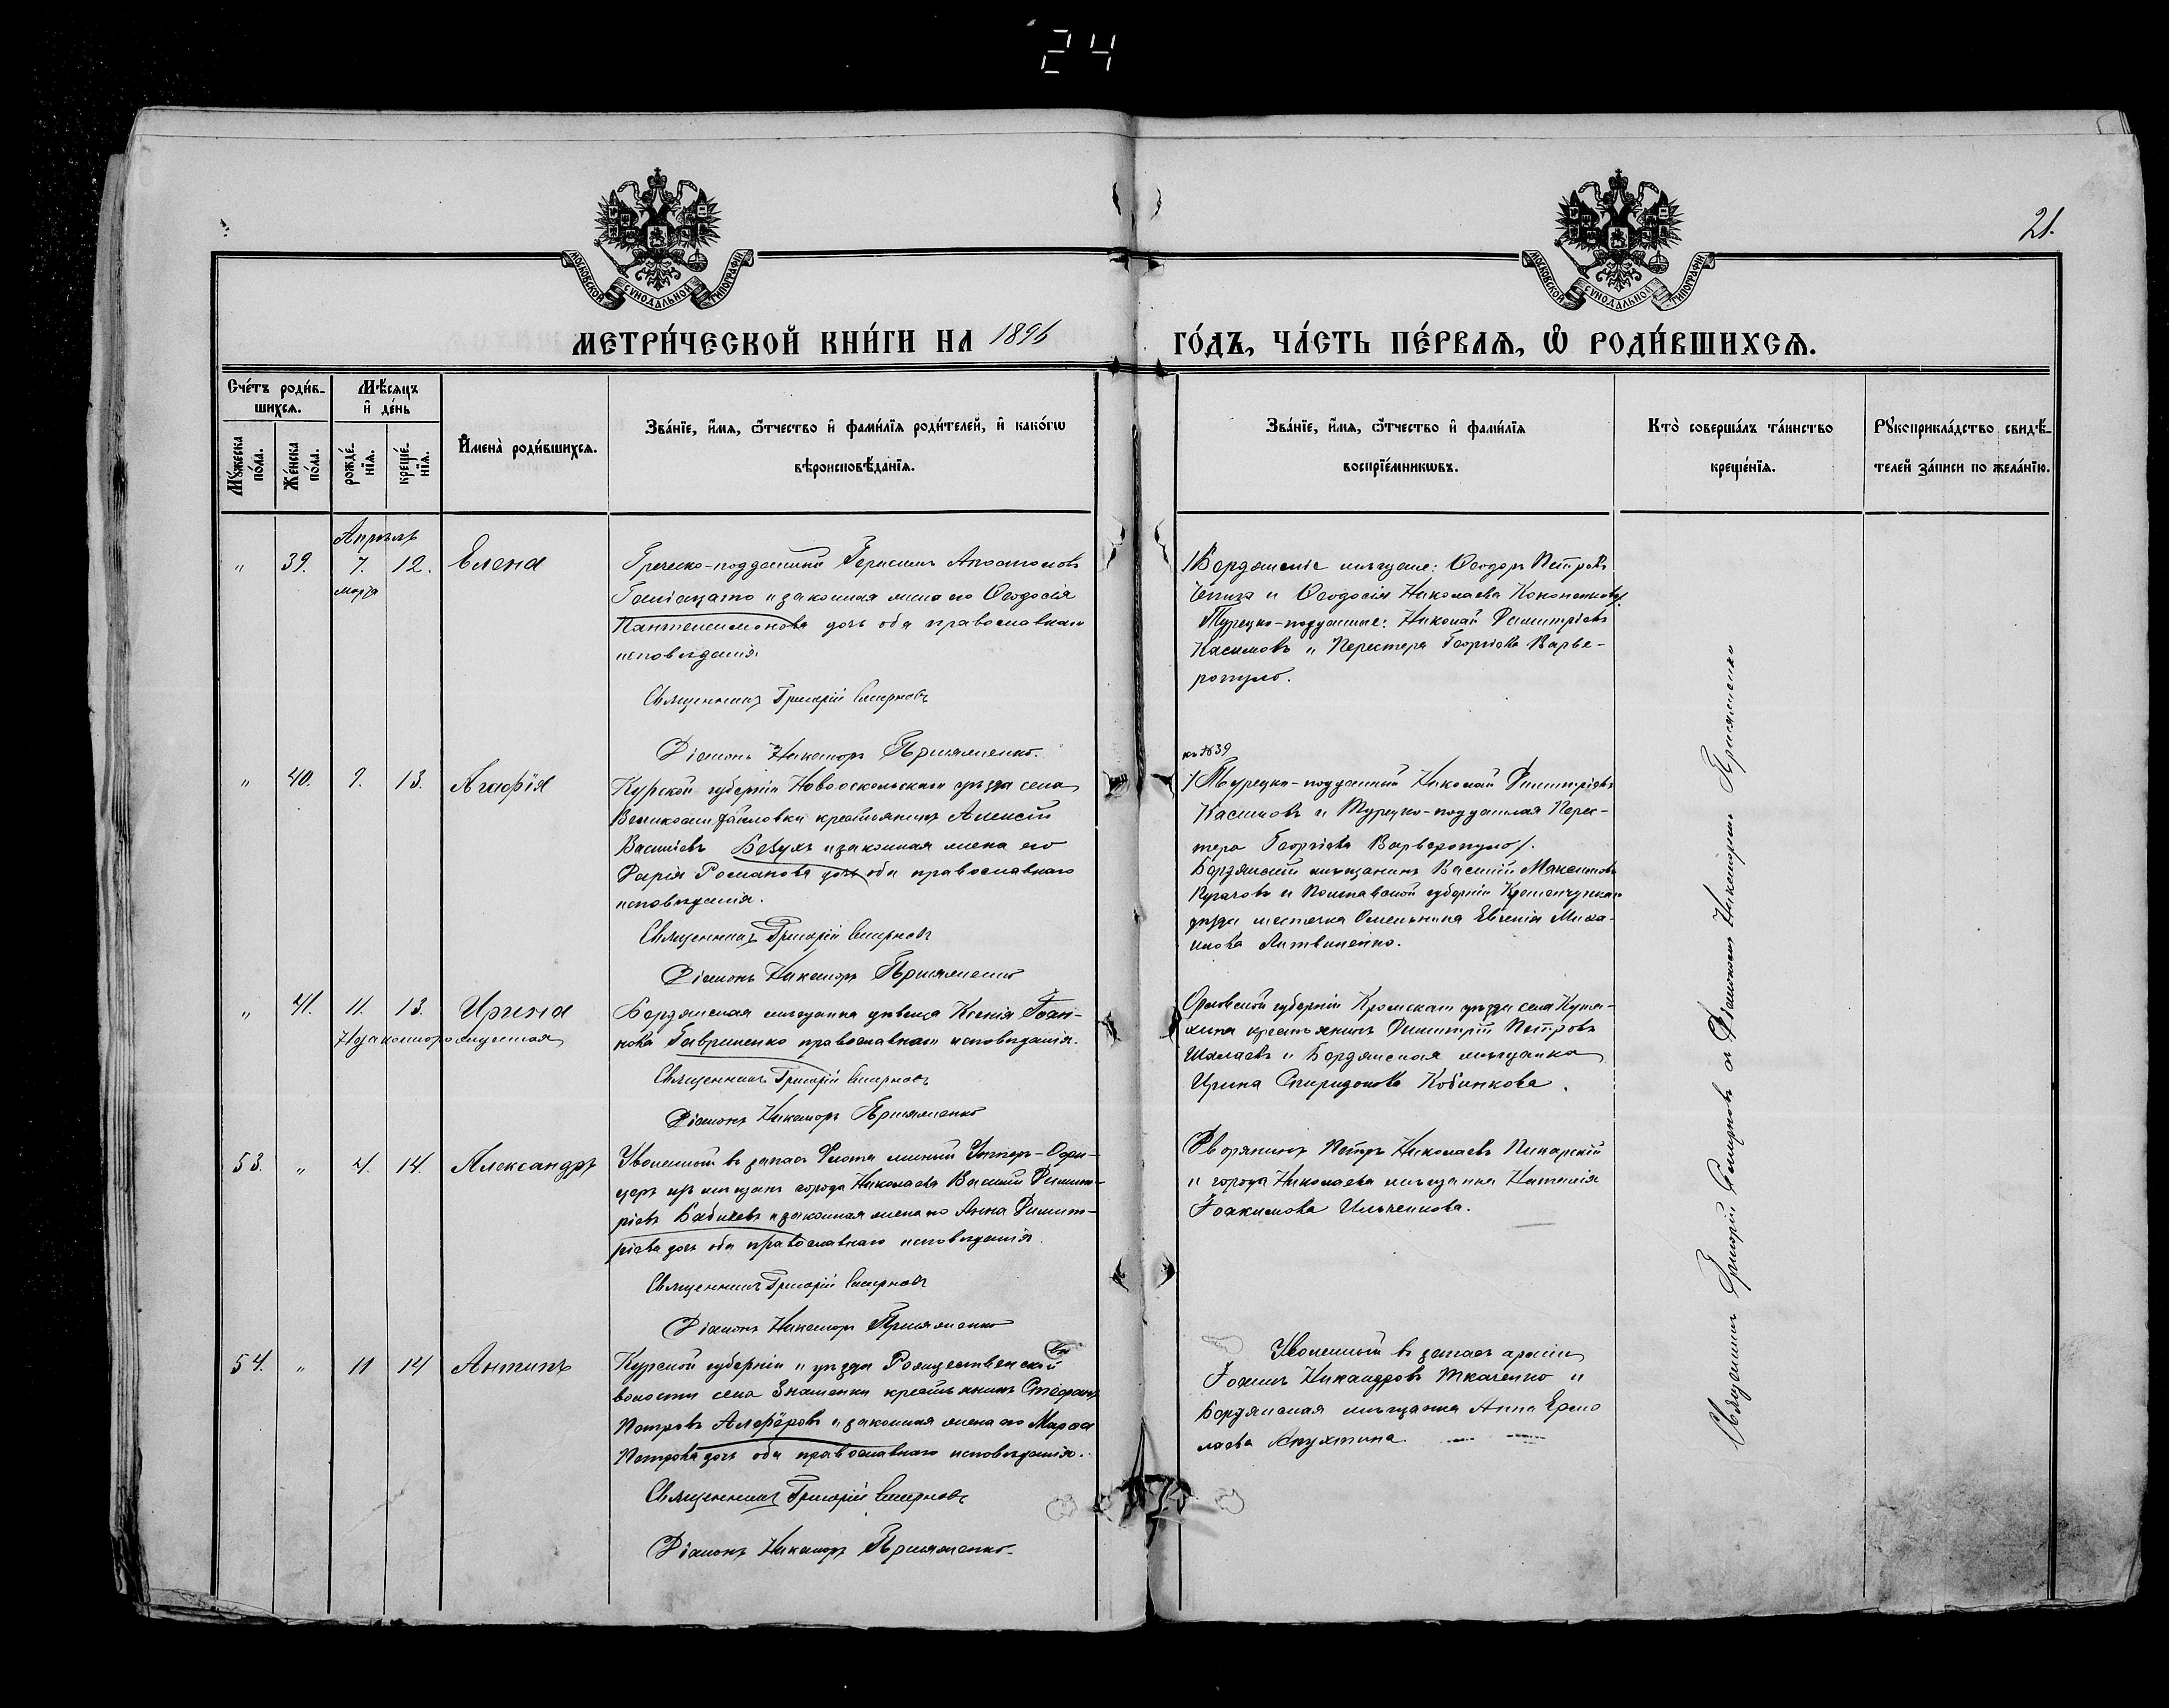 24
21.
МОСКОВСКОЙ СѴНОДАЛЬНОЙ ТИПОГРАФІИ
МОСКОВСКОЙ СѴНОДАЛЬНОЙ ТИПОГРАФІИ
МЕТРИ́ЧЕСКОЙ КНИ́ГИ НА 1896 ГО́ДЪ, ЧА́СТЬ ПЕ́РВАѦ, Ѡ РОДИ́ВШИХСѦ.
Сче́тъ роди́в-
шихсѧ.
Мѣ́сѧцъ
и҆ де́нь
Мꙋ́жеска
по́ла.
Же́нска
по́ла.
рожде́-
нїѧ.
креще́-
нїѧ.
И҆мена̀ роди́вшихсѧ.
Зва́нїе, и҆́мѧ, ѻ҆́тчество и҆ фами́лїѧ роди́телей, и҆ како́гѡ
вѣроисповѣ́данїѧ.
Зва́нїе, и҆́мѧ, ѻ҆́тчество и҆ фами́лїѧ
воспрїе́мникѡвъ.
Кто̀ соверша́лъ та́инство
креще́нїѧ.
Рꙋкоприкла́дство свидѣ́-
телей за́писи по жела́нїю.
Апрѣль
" 39. 7. 12. Елена
марта
Греческо-подданный Герасимъ Апостоловъ
и законная жена его Ѳеодосія
Пантелеимонова дочь оба православнаго
исповѣданія.
Священникъ Григорій Смирновъ
Діаконъ Никаноръ
/Бердянскіе мѣщане: Ѳеодоръ Петровъ
и Ѳеодосія Николаева Кононенкова/.
Турецко-подданные: Николай Димитріевъ
Касимовъ и Перистера Георгіева Варве-
ропуло.
" 40. 9. 13. Агафія
Курской губерніи Новооскольскаго уѣзда села
Великомихайловки крестьянинъ Алексій
Васильевъ Безухъ и законная жена его
Дарія Романова дочь оба православнаго
исповѣданія.
Священникъ Григорій Смирновъ
Діаконъ Никаноръ
къ №39
/Турецко-подданный Николай Димитріевъ
Касимовъ и Турецко-подданная Пери-
тера Георгіева Варваропуло/.
Бердянскій мѣщанинъ Василій Максимовъ
Пугачовъ и Полтавской губерніи Кременчугскаго
уѣзда местечка Омельника Евгенія Миха-
илова Литвиненко.
" 41. 11. 13. Ирина
Незаконнорожденная
Бердянская мѣщанка дѣвица Ксенія Іоан-
нова Гавриленко православнаго исповѣданія.
Священникъ Григорій Смирновъ
Діаконъ Никаноръ
Орловской губерніи Кромскаго уѣзда села
крестьянинъ Димитрій Петровъ
Шалаевъ и Бердянская мѣщанка
Ирина Спиридонова Кобинкова.
53. " 4. 14. Александръ
Уволенный въ запасъ Флота минный Унтеръ-Офи-
церъ изъ мѣщанъ города Николаева Василій Димит-
ріевъ Бабичевъ и законная жена его Анна Димит-
ріева дочь оба православнаго исповѣданія.
Священникъ Григорій Смирновъ
Діаконъ Никаноръ
Дворянинъ Петръ Николаевъ Пинарскій
и города Николаева мѣщанка Наталія
Іоакимова Ильченкова.
54. " 11 14 Антипъ
Курской губерніи и уѣзда Рождественской
волости села Знаменки крестьянинъ Стефанъ
Петровъ Алфёровъ и законная жена его Марѳа
Петрова дочь оба православнаго исповѣданія.
Священникъ Григорій Смирновъ
Діаконъ Никаноръ
Уволенный въ запасъ арміи
Іоакимъ Никандровъ Ткаченко и
Бердянская мѣщанка Анна Ермо
лаева Апухтина.
Священникъ Григорій Смирновъ съ Діакономъ Никаноромъ